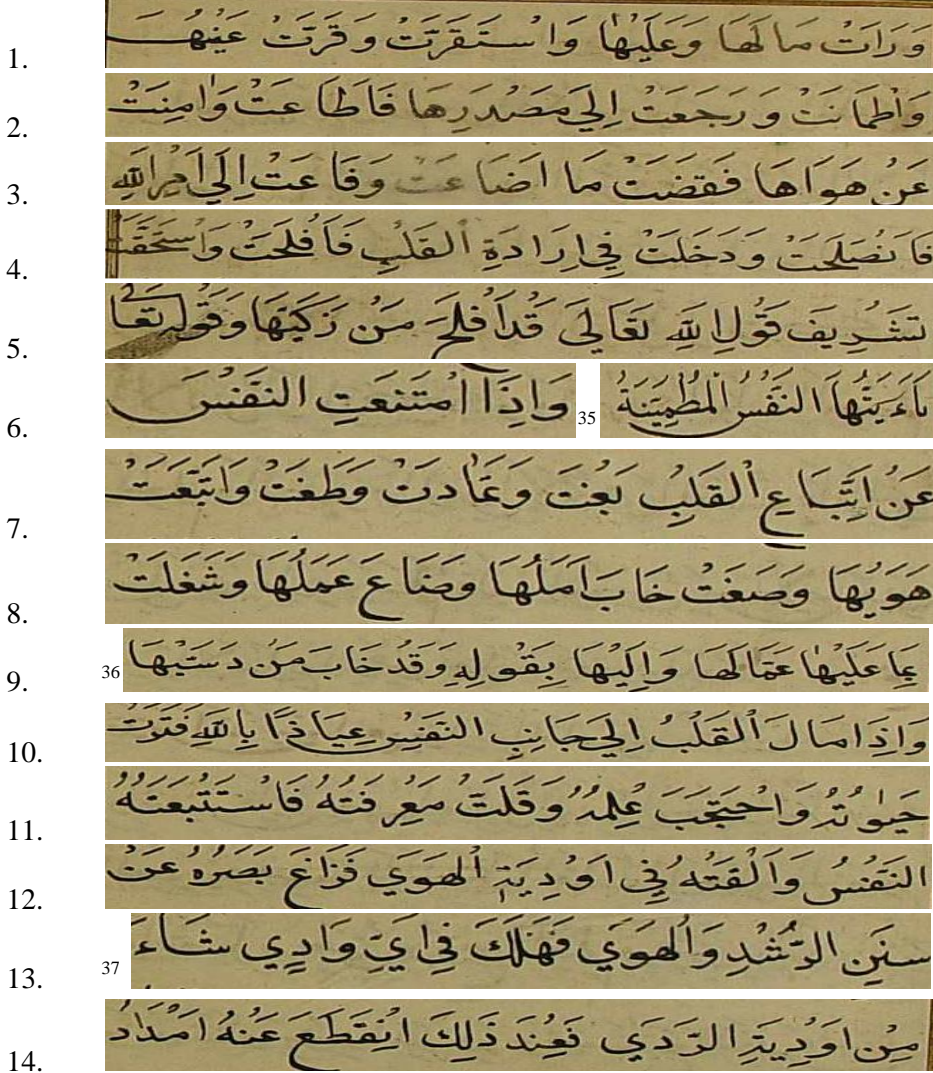 1. وَرَاَتْ مَا لَهَا وَعَلَيْهَا وَاسْتَقَرَّتْ وَقَرَّتْ عَيْنُهَا
2. وَاطْمَانَتْ وَرَجَعَتْ اِلَي مَصْدَرِهَا فَاَطَاعَتْ وَاٰمِنَتْ
3. عَنْ هَوَاهَا فَقَضَتْ مَا اَضَاعَتْ وَفَاءَتْ اِلَي اَمْرِ اللّٰهِ
4. فَانْصَلَحَتْ وَدَخَلَتْ فِي اِرَادَةِ الْقَلْبِ فَاَفْلَحَتْ وَاسْتَحَقَّتْ
5. تَشْرِيفَ قَوْلِ اللّٰهِ تَعَالَي قَدْ اَفْلَحَ مَنْ زَكّٰيهَا وَقَوْلِهِ تَعَا
6. يَاءَيَّتُهَا النَّفْسُ الْمُطْمَئِنَّةُ 35 وَاِذَا امْتَنَعَتِ النَّفْسُ
7. عَنْ اِتِّبَاعِ الْقَلْبِ بَغَتْ وَتَمَادَتْ وَطَغَتْ وَاتَّبَعَتْ
8. هَوٰيهَا وَصَغَتْ خَابَ اَمَلُهَا وَضَاعَ عَمَلُهَا وَشَغَلَتْ
9. بِمَا عَلَيْهَا عَمَّا لَهَا وَاِلَيْهَا بِقَوْلِهِ وَقَدْ خَابَ مَنْ دَسّٰيهَا 36
10. وَاِذَا مَالَ الْقَلْبُ اِلَي جَانِبِ النَّفْسِ عِيَاذًا بِاللّٰهِ فَتَرَتْ
11. حَيٰوتُهُ وَاحْتَجَبَ عِلْمُهُ وَقَلَّتْ مَعْرِفَتُهُ فَاسْتَتْبَعَتْهُ
12. النَّفْسُ وَاَلْقَتْهُ فِي اَوْدِيَةِ الْهَوَي فَزَاغَ بَصَرُهُ عَنْ
13. سَنَنِ الرُّشْدِ وَالْهَوَي فَهَلَكَ فِي اَيِّ وَادِي شَاءَ 37
14. مِنْ اَوْدِيَةِ الرَّدَي فَعِنْدَ ذَلِكَ انْقَطَعَ عَنْهُ اَمْدَادُ